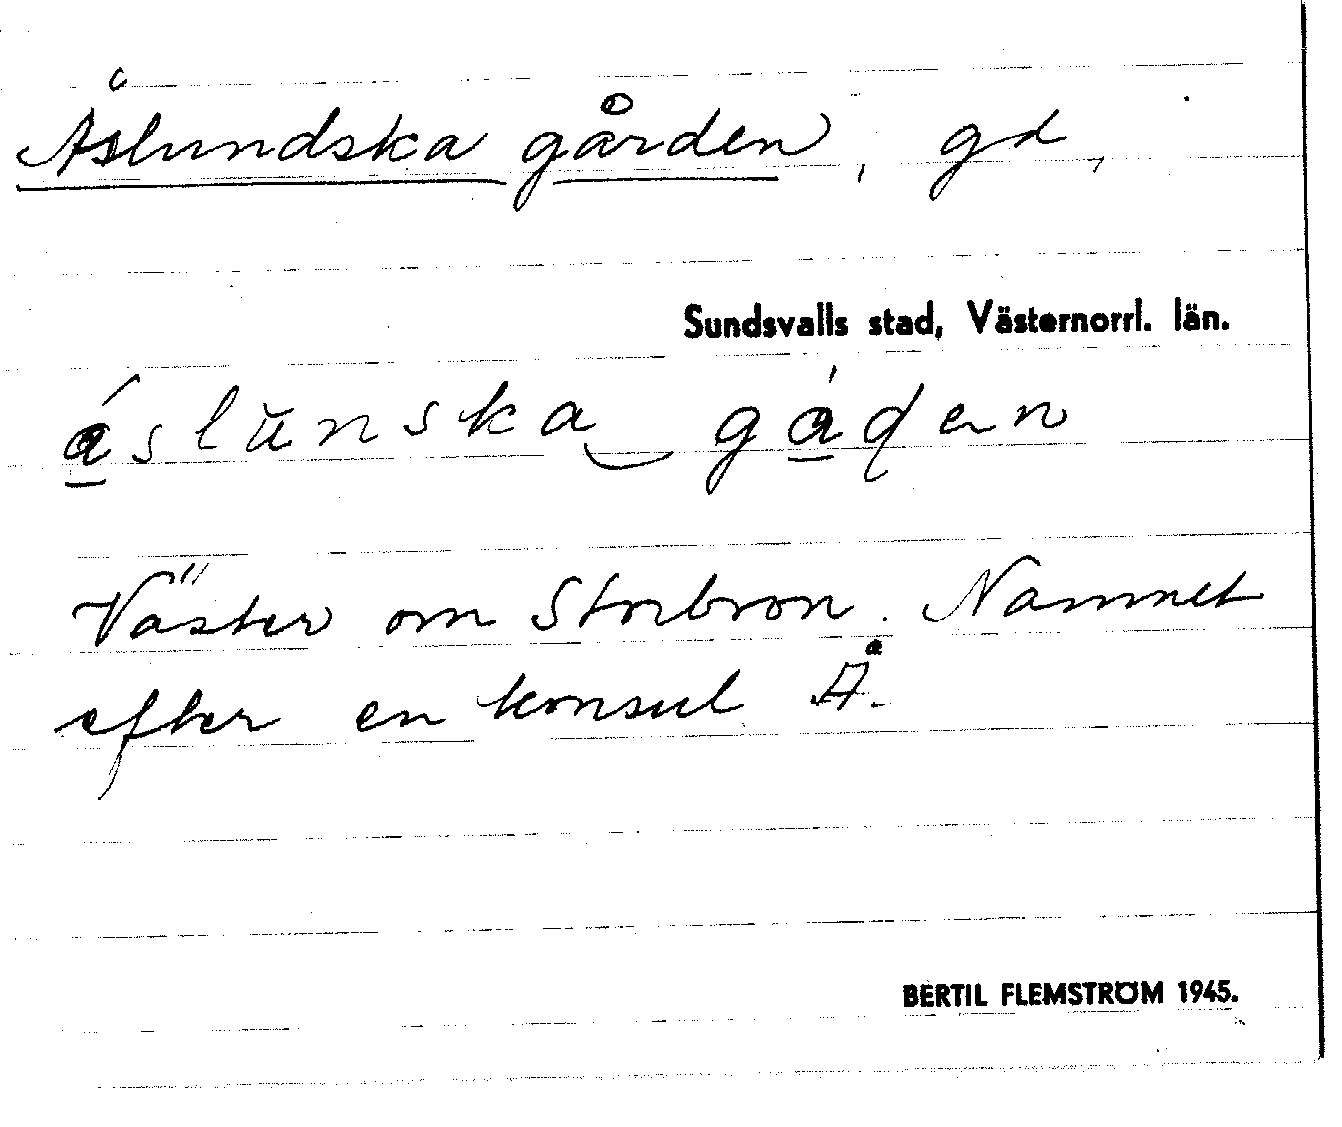 Åslundska gården, gd,
Sundsvalls stad, Västernorrl. län.
Väster om Storbron. Namnet
efter en konsul Å.
BERTIL FLEMSTRÖM 1945.